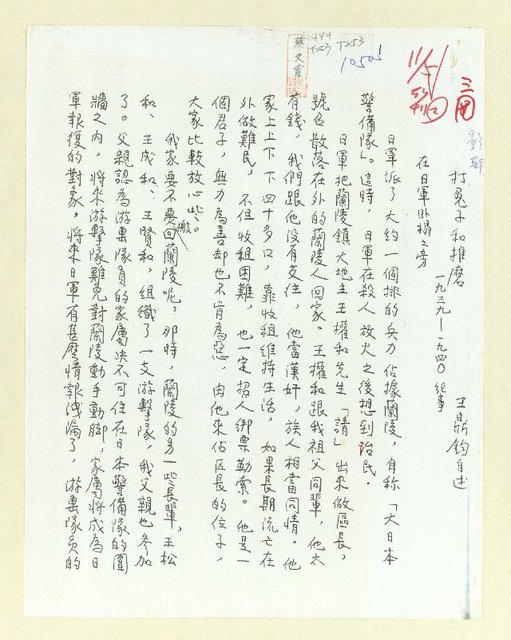 打鬼子和推磨
王鼎鈞自述
一九三九—一九四〇紀事
在日軍臥榻之旁
日軍派了大約一個排的兵力佔據蘭陵，自稱「大日本
警備隊」。這時，日軍在殺人放火之後想到治民。
日軍把蘭陵鎮大地主王櫂和先生「請」出來做區長，
號召散落在外的蘭陵人回家。王櫂和跟我祖父同輩，他太
有錢，我們跟他沒有交往，他當漢奸，族人相當同情。他
家上上下下四十多口，靠收租維持生活，如果長期流亡在
外做難民，不但收租困難，也一定招人綁票勒索。他是一
個君子，無力為善却也不肯為惡，由他來佔區長的位子，
大家比較放心些。
我家要不要搬回蘭陵呢，那時，蘭陵的另一些長輩，王松
和、王成和、王賢和，組織了一支游擊隊，我父親也參加
了。父親認為游擊隊員的家屬決不可住在日本警備隊的圍
牆之內，將來游擊隊難免對蘭陵動手動腳，家屬將成為日
軍報復的對象，將來日軍有甚麼情報洩漏了，游擊隊員的
蔡文甫
444
T253
T253
10505